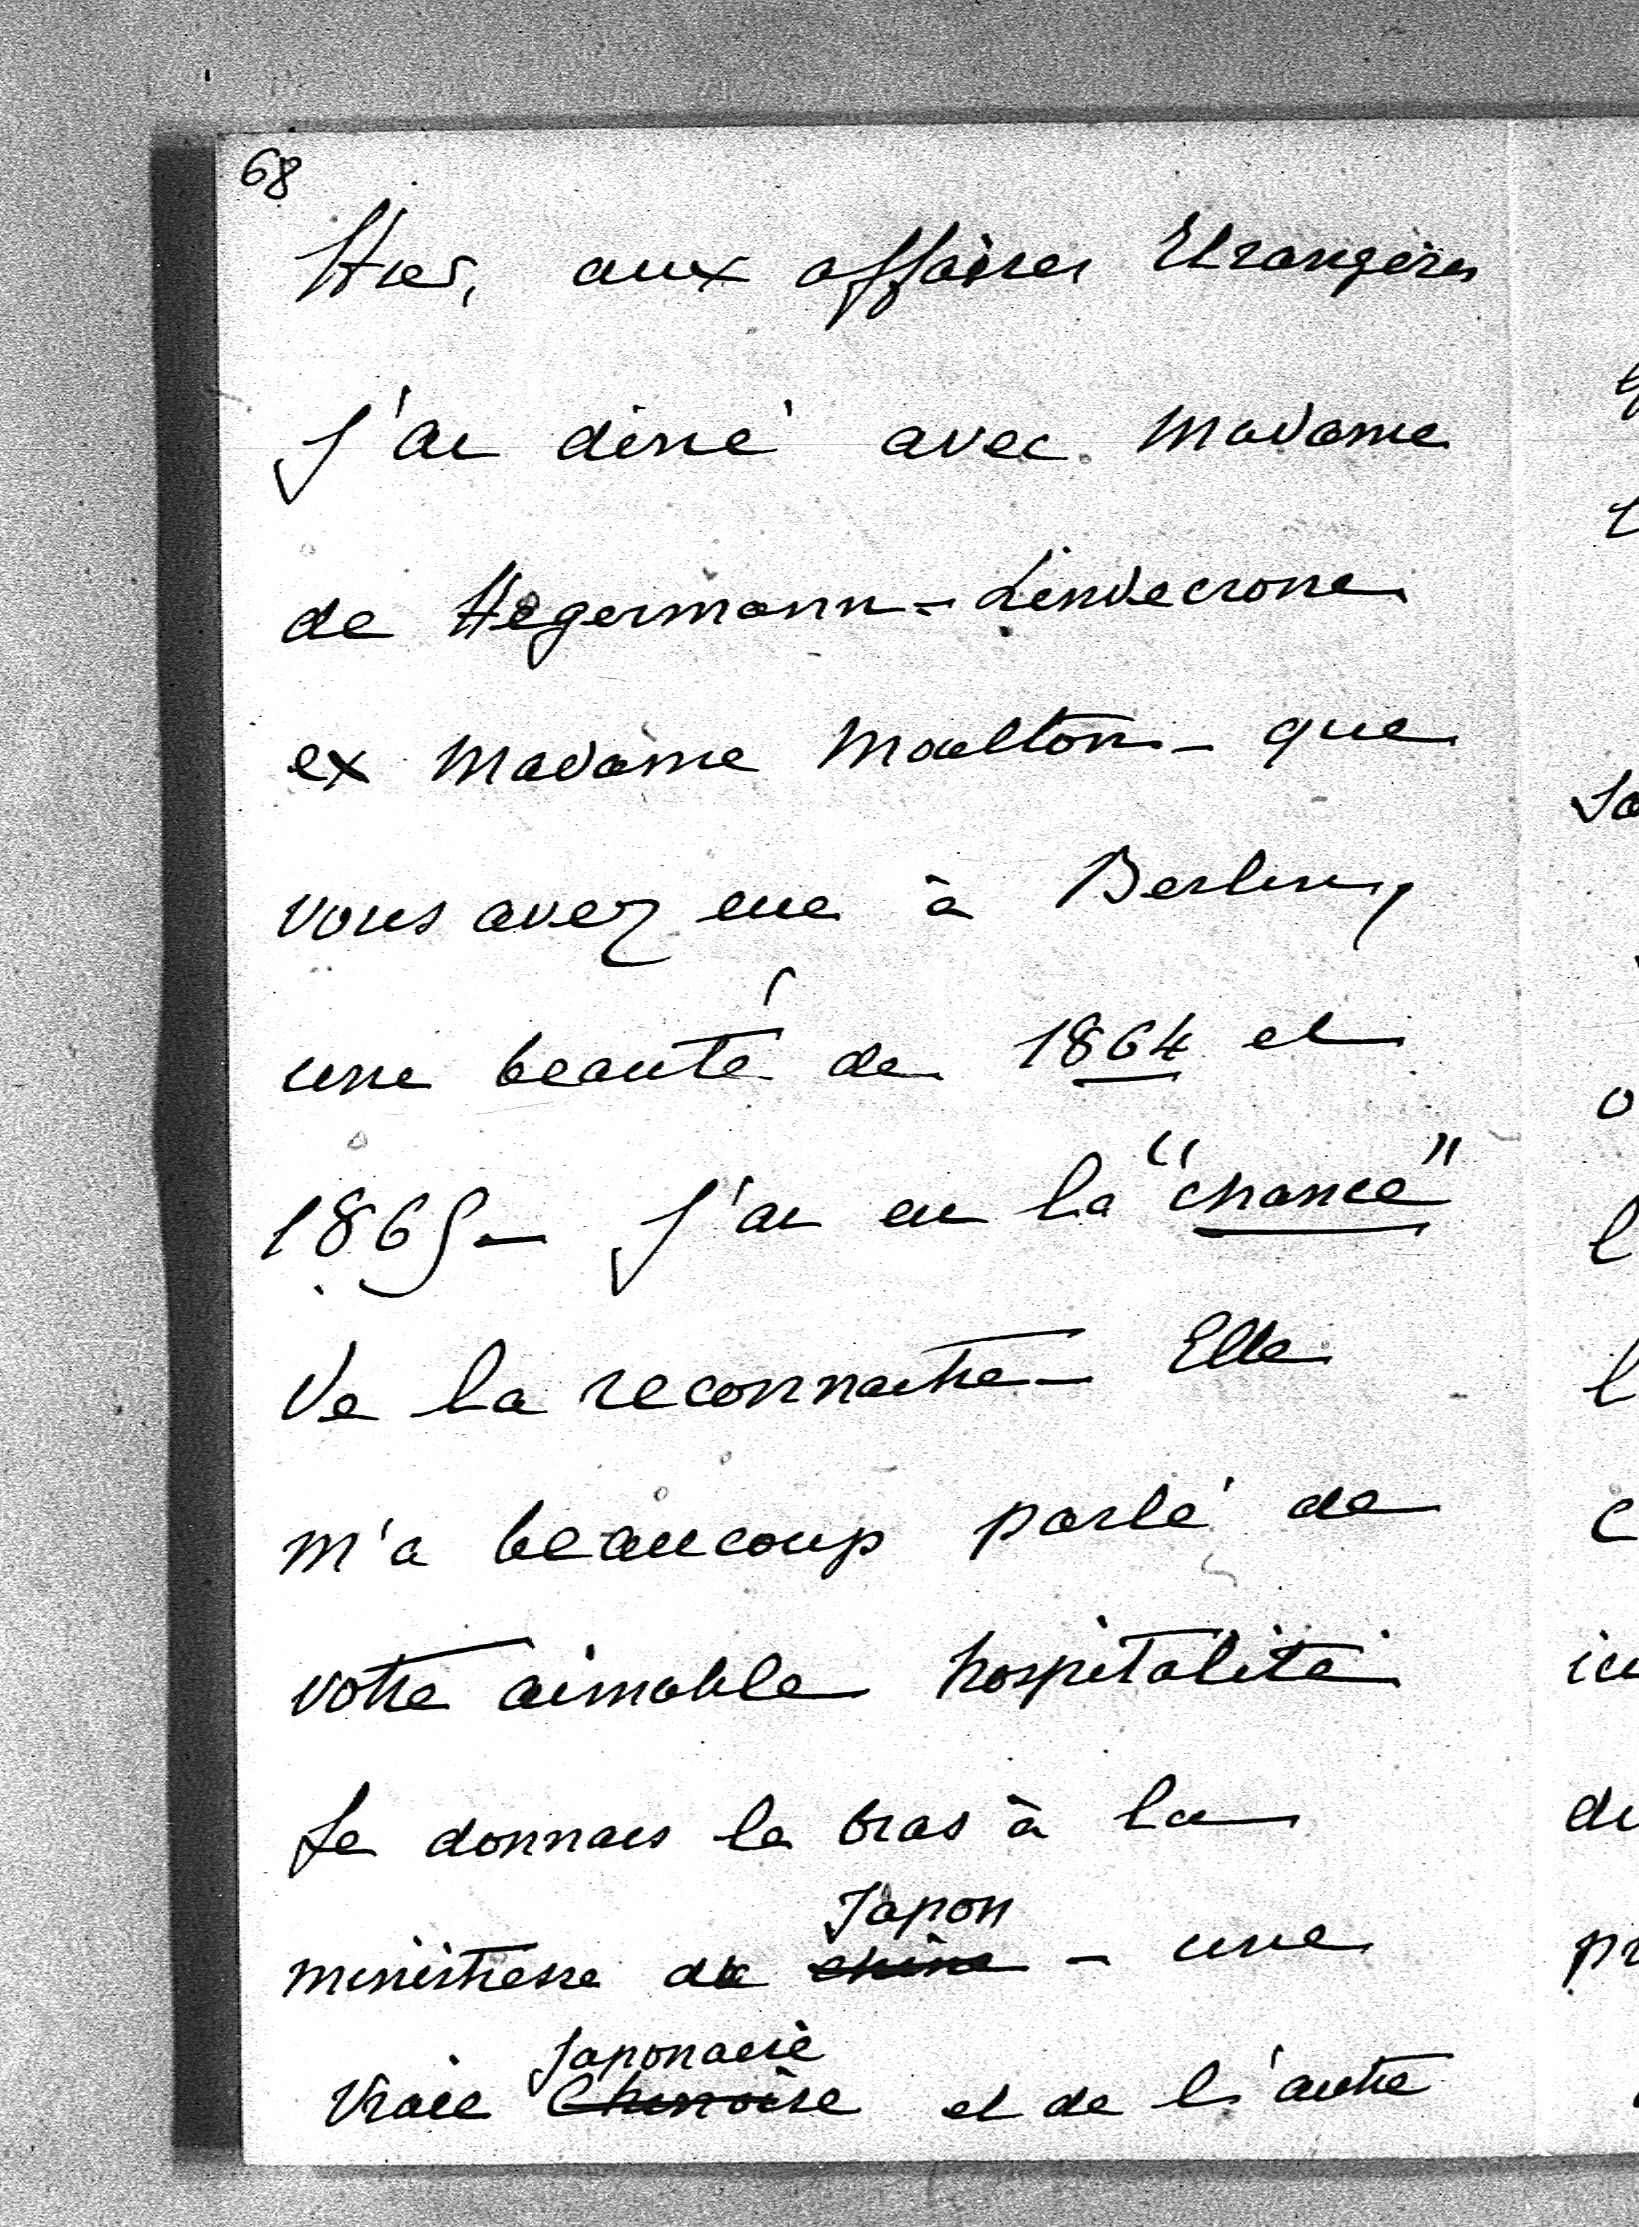 68
Hier, aux affaires Etrangères
J'ai diné avec Madame
de Hegermann-Lindecrone
ex Madame Moulton - que
vous avez eue à Berlin,
une beauté de 1864 et
1865 - J'ai eu la "chance"
de la reconnaitre - Elle
m'a beaucoup parlé de
votre aimable hospitalité
Je donnais le bras à la
Japon
ministresse du chine - une
Japonaise
vraie Chinoise et de l'autre